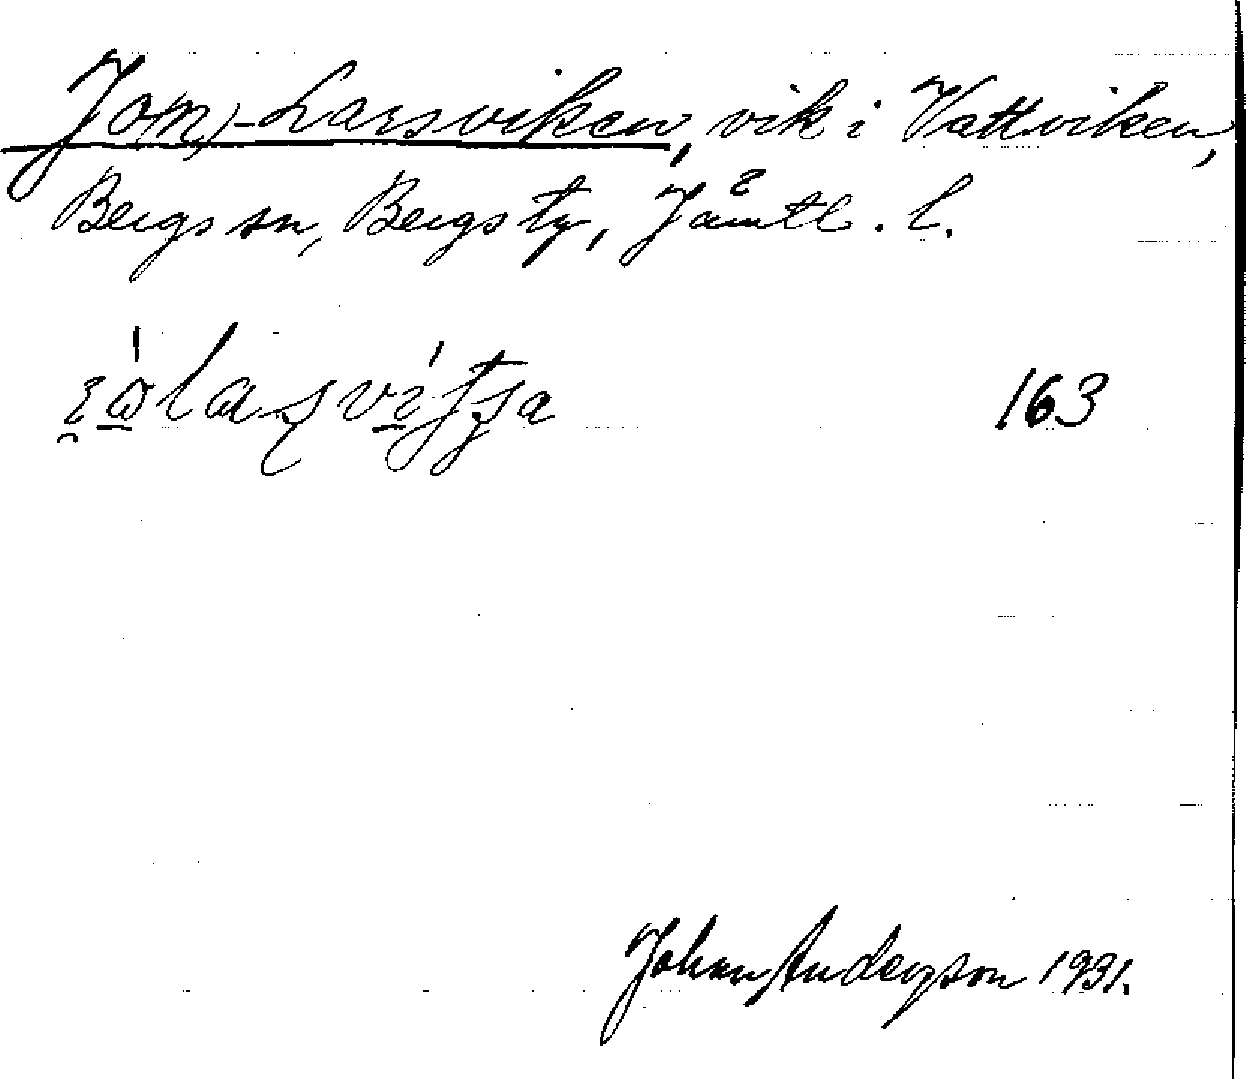 Jo(n)-Larsviken, vik i Vattviken,
Bergs sn, Bergs tg, Jämtl. l.
163
Johan Anderson 1931.